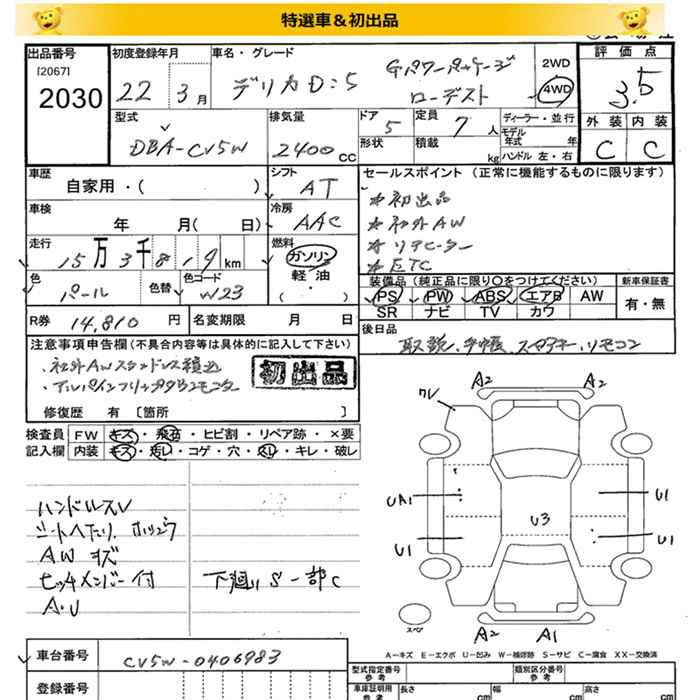 特選車＆初出品
出品番号 初度登録年月 車名・グレード 評価点
[2067]
2030 22 3月 デリカD:5 Gパワーパッケージ ローデスト 2WD 4WD 3.5
型式 排気量 ドア 定員 ディーラー・並行 外装 内装
DBA-CV5W 2400CC 5 7人 モデル年式 年 C C
形状 積載 kg ハンドル 左・右
車歴 シフト セールスポイント (正常に機能するものに限ります)
自家用・( ) AT ＊初出品
車検 冷房 ＊社外AW
年 月( 日) AAC ＊リアヒーター
走行 燃料 ＊ETC
15万3千819km ガソリン
軽・油
・( )
色 色替 色コード 装備品 (純正品に限り○をつけてください) 新車保証書
パール W23 PS PW ABS エアB AW 有・無
SR ナビ TV カワ
R券 14,810円 名変期限 月 日 後日品
取説、手帳、スペアキー、リモコン
注意事項申告欄(不具合内容等は具体的に記入して下さい)
・社外AWスタッドレス積込
・アルパインフリップダウンモニター
初出品
修復歴 有 [箇所 ]
検査員 FW キズ・飛石・ヒビ割・リペア跡・×要
記入欄 内装 キズ・汚レ・コゲ・穴・スレ・キレ・破レ
ハンドルスレ
シートヘタリ
AW キズ
ヒッチメンバー付 下廻りS一部C
A・U
A2 A2
クレ
UA1 U1
U3
U1 U1
スペア
A2 A1
A－キズ E－エクボ U－凹み W－補修跡 S－サビ C－腐食 XX－交換済
車台番号 CV5W-0406983 型式指定番号 参考 類別区分番号 参考
登録番号 車庫証明用 参考 長さ cm 幅 cm 高さ cm